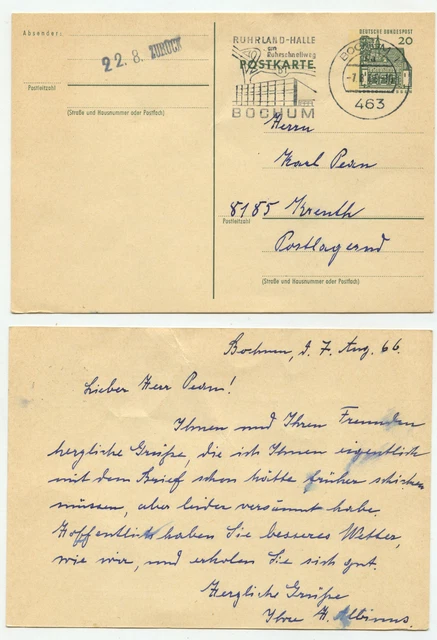 Absender:
22. 8. ZURÜCK
Postleitzahl
(Straße und Hausnummer oder Postfach)
RUHRLAND-HALLE
am
Ruhrschnellweg
BOCHUM
POSTKARTE
DEUTSCHE BUNDESPOST
20
BOCHUM
463
Herrn
Karl Pean
8185 Kreuth
Postleitzahl
Postlagernd
(Straße und Hausnummer oder Postfach)
Bochum, d. 7. Aug. 66.
Lieber Herr Pean!
Ihnen und Ihren Freunden
herzliche Grüße, die ich Ihnen eigentlich
mit dem Brief schon hätte früher schicken
müssen, aber leider versäumt habe.
Hoffentlich haben Sie besseres Wetter,
wie wir, und erholen Sie sich gut.
Herzliche Grüße
Ihre H. Albinus.